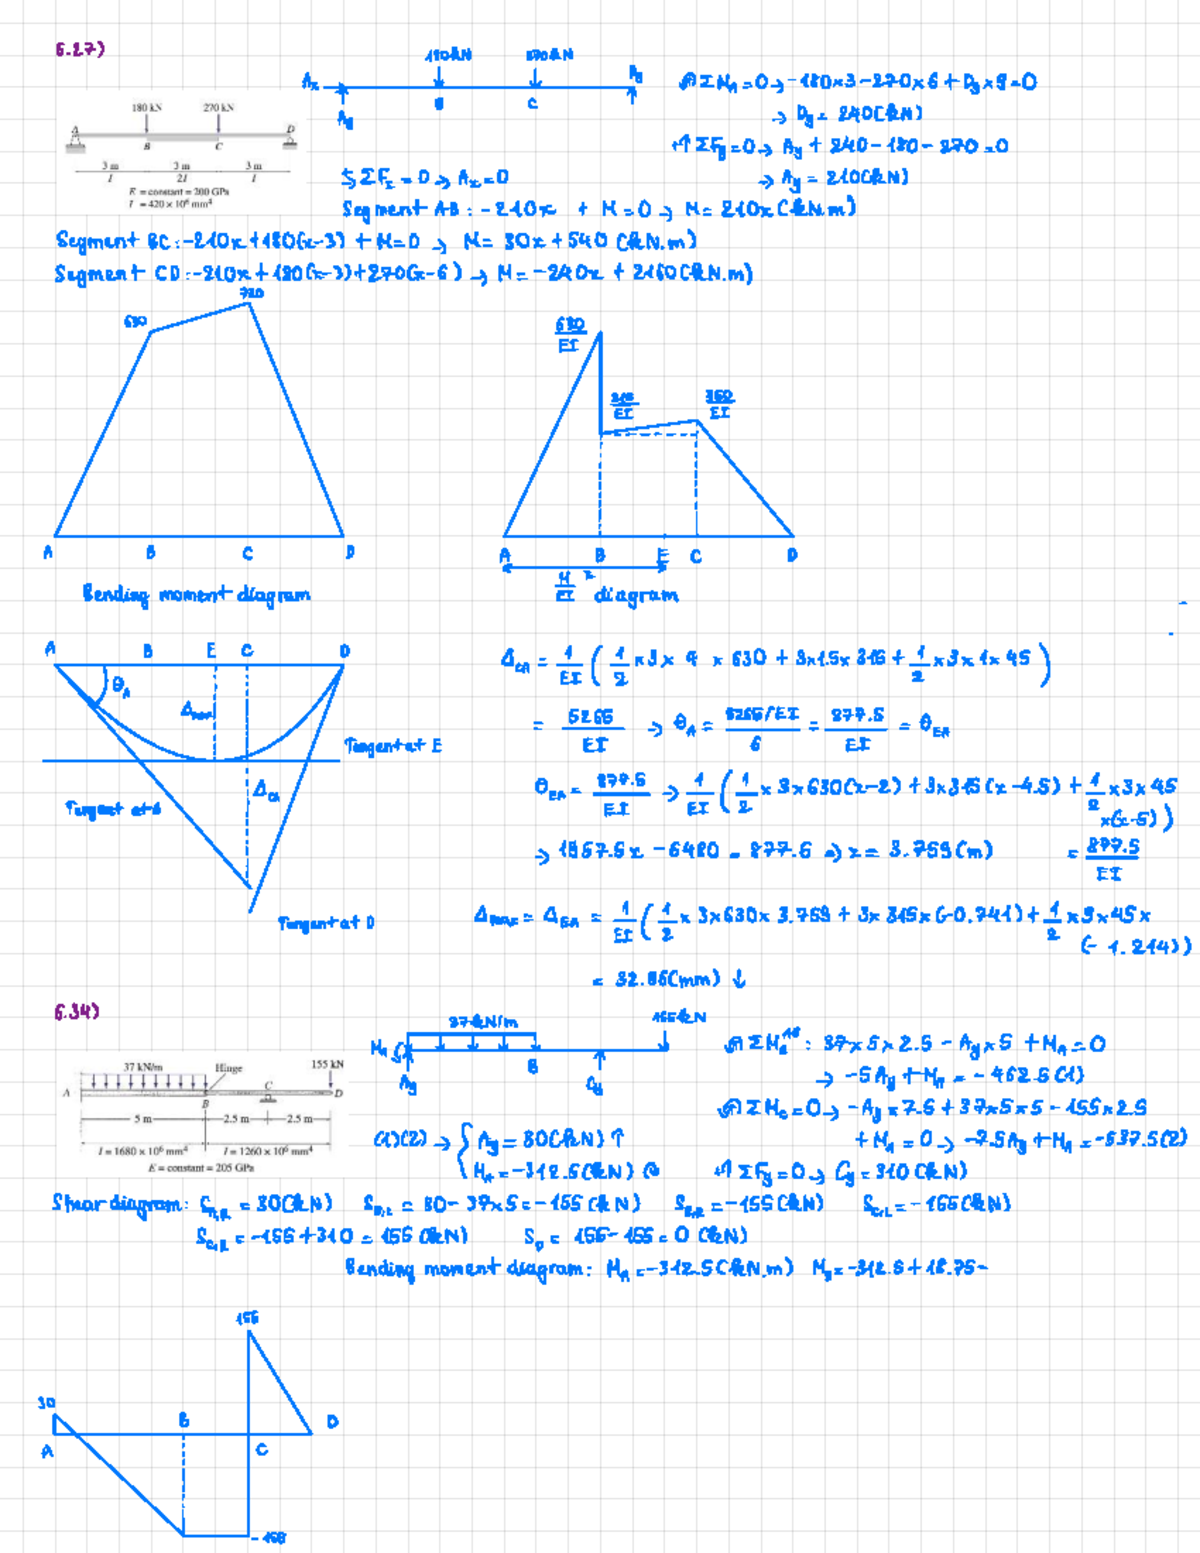 6.27)
180 kN 270 kN
A B C D
3 m 3 m 3 m
I 2I I
E = constant = 200 GPa
I = 420 × 10⁶ mm⁴
180kN 270kN
Ax Ay B C
↶ΣM_A = 0 → -180×3 - 270×6 + Dy×9 = 0
→ Dy = 240(kN)
+↑ΣFy = 0 → Ay + 240 - 180 - 270 = 0
→ Ay = 210(kN)
ΣFx = 0 → Ax = 0
Segment AB: -210x + M = 0 → M = 210x (kN.m)
Segment BC: -210x + 180(x-3) + M = 0 → M = 30x + 540 (kN.m)
Segment CD: -210x + 180(x-3) + 270(x-6) → M = -240x + 2160(kN.m)
630 720
A B C D
Bending moment diagram
630/EI 315/EI 360/EI
A B E C D
x
M/EI diagram
A B E C D
θA Δmax
Tangent at E
ΔCA
Tangent at A
Tangent at D
Δ_CA = 1/EI (1/2 × 3 × 4 × 630 + 3×1.5×315 + 1/2 × 3 × 1 × 45)
= 5265/EI → θA = 5265/EI / 6 = 877.5/EI = θ_EA
θ_EA = 877.5/EI → 1/EI (1/2 × 3×630(x-2) + 3×315(x-4.5) + 1/2 × 3×45
×(x-5))
→ 1957.5x - 6480 = 877.5 → x = 3.759(m) = 877.5/EI
Δmax = Δ_EA = 1/EI (1/2 × 3×630 × 3.759 + 3×315×(-0.741) + 1/2 × 3×45×
(-1.214))
= 32.86(mm) ↓
6.34)
37 kN/m Hinge 155 kN
A B C D
5 m 2.5 m 2.5 m
I = 1680 × 10⁶ mm⁴ I = 1260 × 10⁶ mm⁴
E = constant = 205 GPa
37kN/m 155kN
M_A Ay B Cy
↶ΣM_B^AB: 37×5×2.5 - Ay×5 + M_A = 0
→ -5Ay + M_A = -462.5(1)
↶ΣM_C = 0 → -Ay×7.5 + 37×5×5 - 155×2.5
+ M_A = 0 → -7.5Ay + M_A = -537.5(2)
(1)(2) → { Ay = 30(kN) ↑
M_A = -312.5(kN)
+↑ΣFy = 0 → Cy = 310(kN)
Shear diagram: S_A,R = 30(kN) S_B,L = 30 - 37×5 = -155(kN) S_B,R = -155(kN) S_C,L = -155(kN)
S_C,R = -155 + 310 = 155(kN) S_D = 155 - 155 = 0 (kN)
Bending moment diagram: M_A = -312.5(kN.m) M_B = -312.5 + 18.75 -
155
30
A B C D
-155